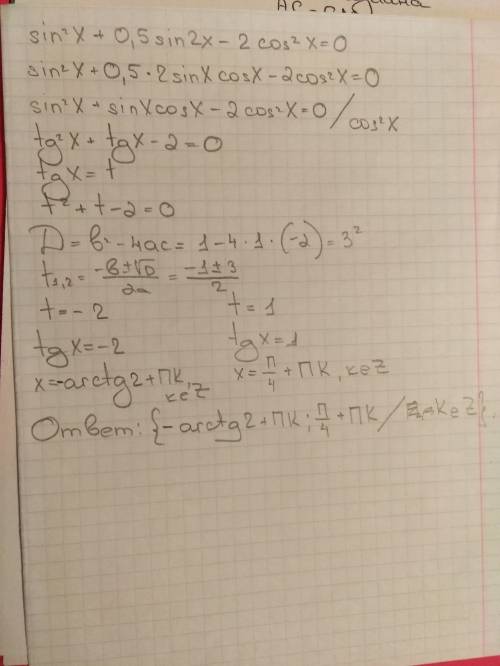 sin²x + 0,5 sin2x - 2 cos²x = 0
sin²x + 0,5 · 2 sinx cosx - 2cos²x = 0
sin²x + sinx cosx - 2 cos²x = 0 / cos²x
tg²x + tgx - 2 = 0
tgx = t
t² + t - 2 = 0
D = в² - 4ас = 1 - 4 · 1 · (-2) = 3²
t₁,₂ = (-в ± √D)/2а = (-1 ± 3)/2
t = - 2 t = 1
tgx = -2 tgx = 1
x = -arctg2 + ПК, кєZ x = П/4 + ПК, кєZ
Ответ: {- arctg2 + ПК; П/4 + ПК / кєZ}.